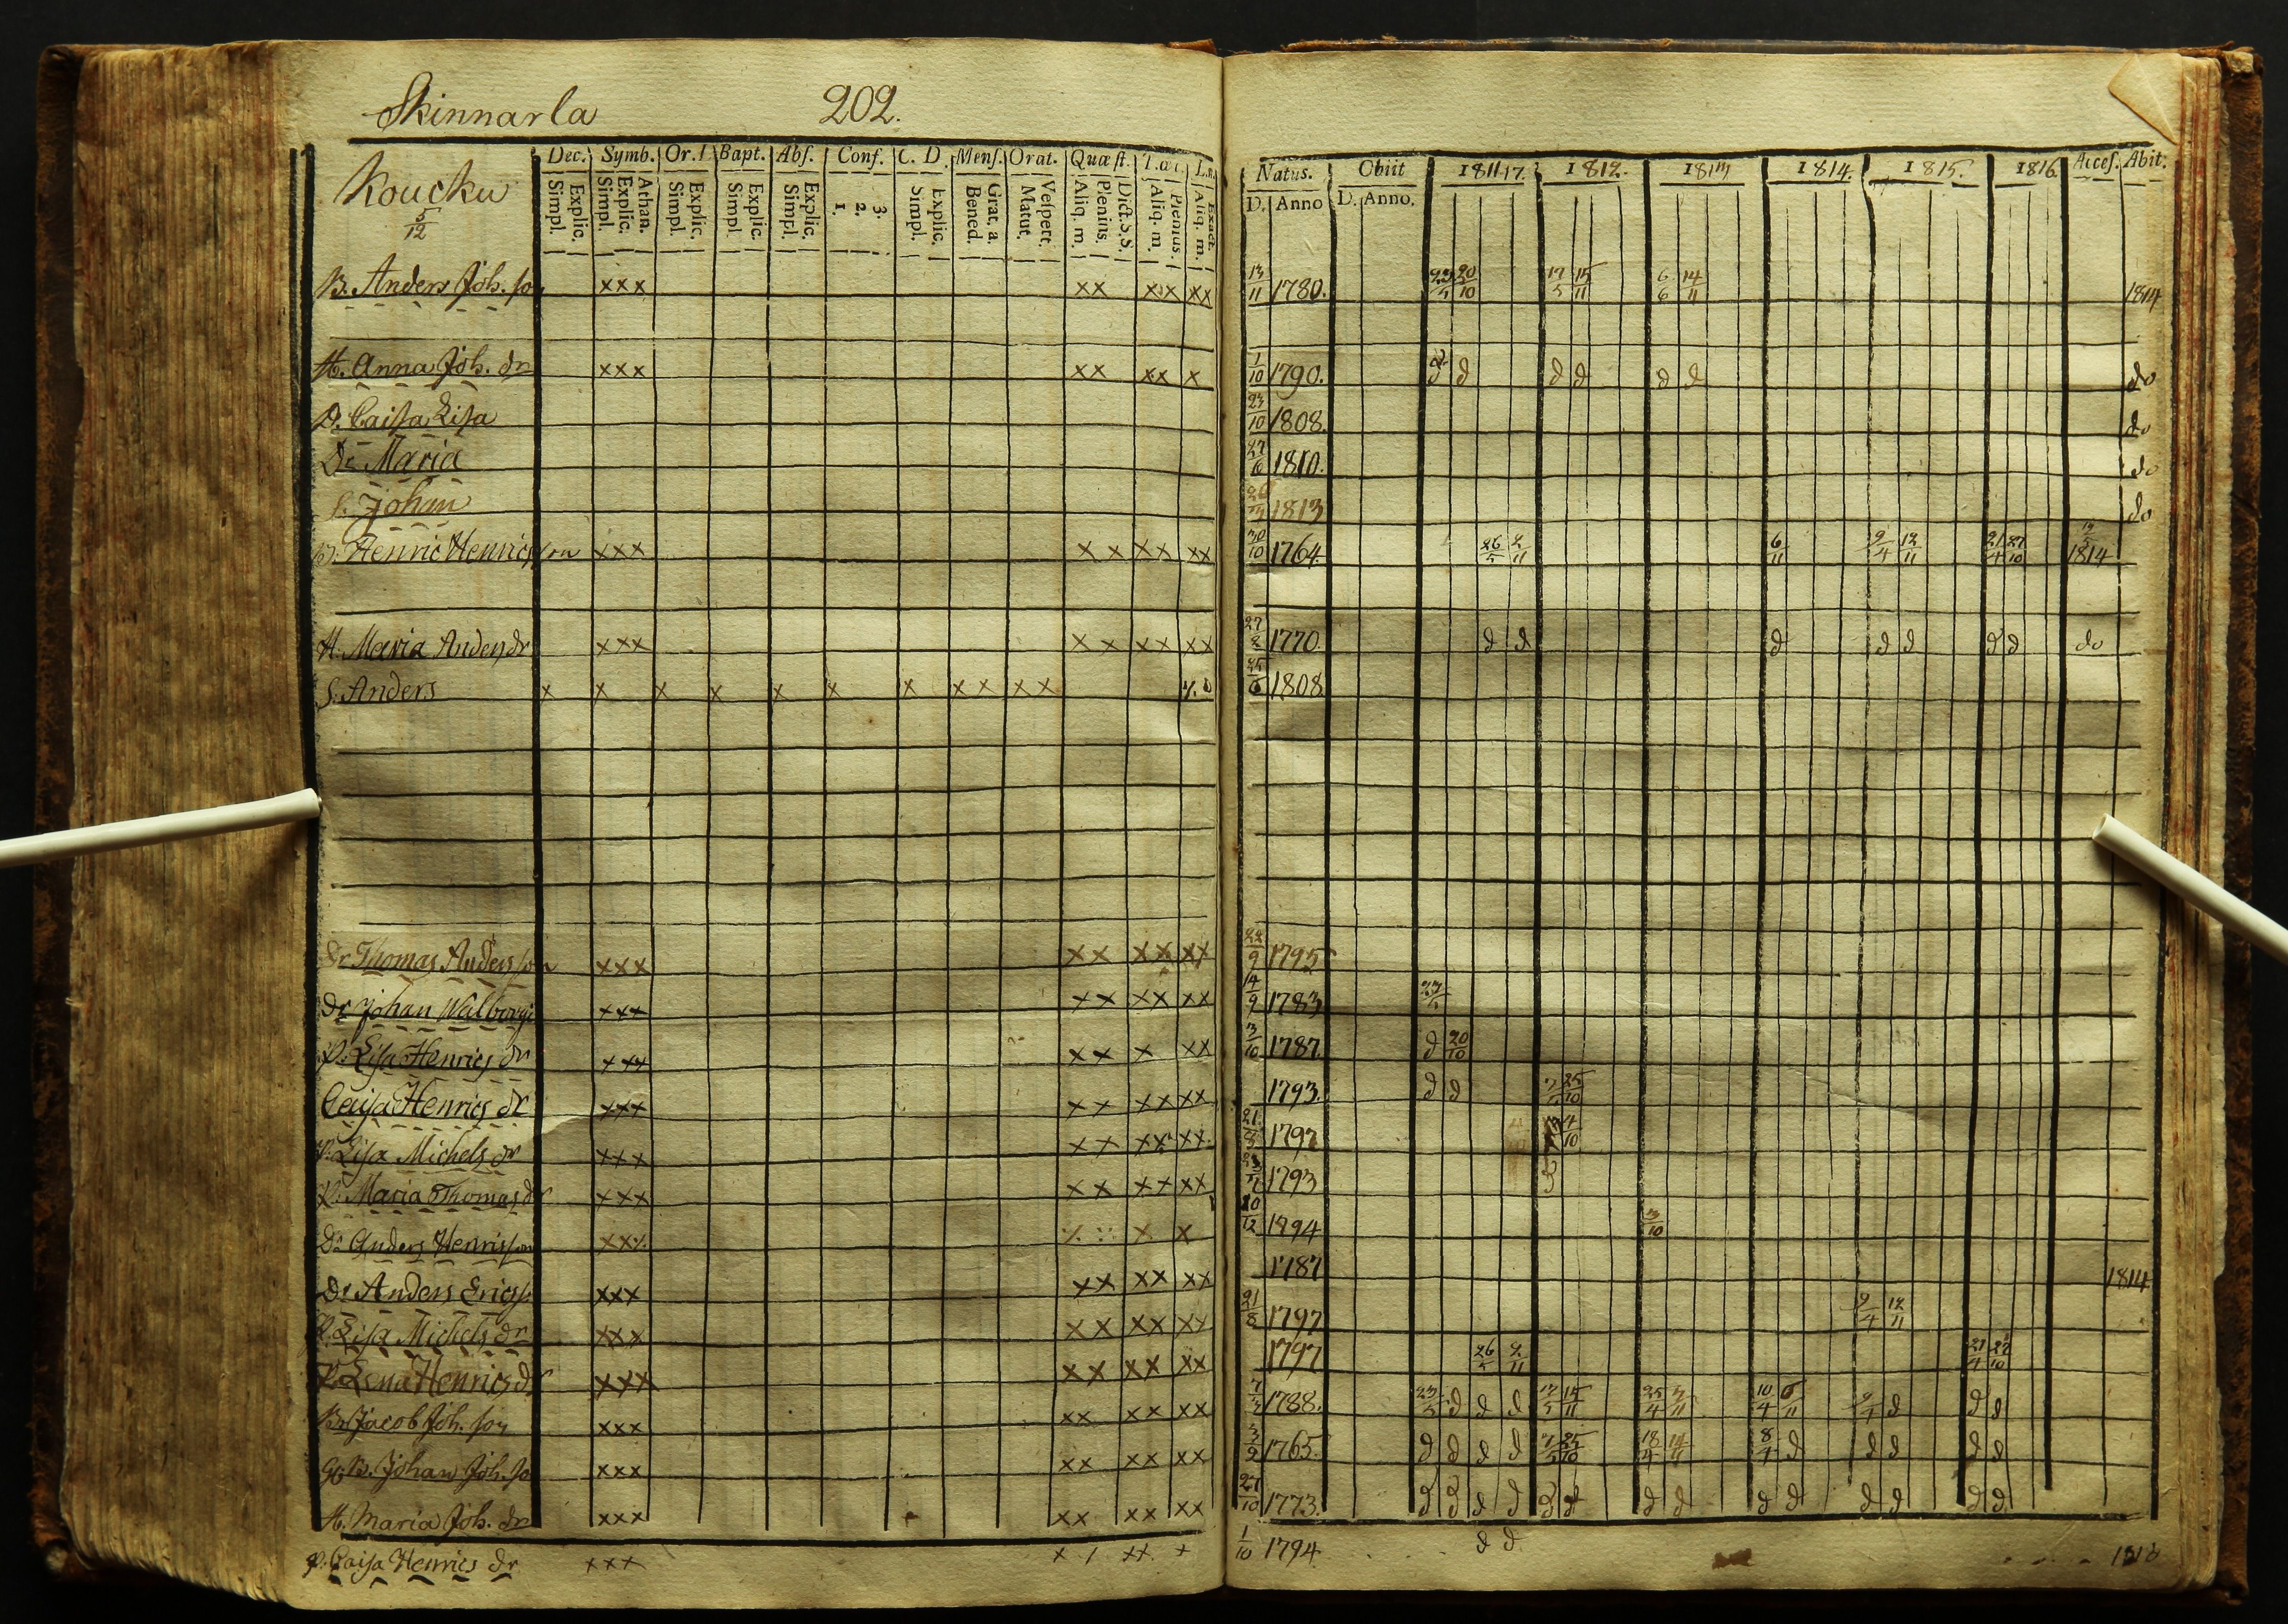 Skinnarla 202.
Koucku
5/12
Dec. Symb. Or. Bapt. Abs. Conf. C. D. Mens. Orat. Quæst.
Simpl. Explic. Simpl. Explic. Athan. Simpl. Explic. Simpl. Explic. Simpl. Explic. 1. 2. 3. Simpl. Explic. Bened. Grat. a. Matut. Vespert. Aliq. m. Plenius. Dict. S.S. Aliq. m. Plenius. Aliq. m. Exact.
Natus. Obiit 1811 17. 1812. 181 1814. 1815. 1816. Acces. Abit.
D. Anno D. Anno.
B. Anders Joh. son xxx xx xxx xx 13/11 1780. 20/10 17/5 15/11 6/6 14/11 1814
H. Anna Joh. dr xxx xx xx x 1/10 1790. d d d d d d do
D. Caisa Lisa 23/10 1808. do
Dr Maria 27/10 1810. do
S. Johan 1813 do
Henric Henricsson xxx xx xx xx 30/10 1764. 26/5 2/11 6/11 9/4 12/11 21/4 27/10 1814
H. Maria Anders dr xxx xx xx xx 1770. d d d d d d d do
S. Anders x x x x x x x xx xx 1808
Dr Thomas Andersson xxx xx xx xx 22/9 1795
Dr Johan xxx xx xx xx 14/9 1783
P. Lisa Henrics dr xxx xx x xx 3/10 1787. d 20/10
Caisa Henrics dr xxx xx xx xx 1793. d d 25/10
P. Lisa Michels dr xxx xx xx xx 1797 4/10
P. Maria Thomas dr xxx xx xx xx 1793
Dr Anders Henricsson xx x x /12 1794 3/10
Dr Anders Erics. xxx xx xx xx 1787 1814
P. Lisa Michels dr xxx xx xx xx 21/8 1797 9/4 12/11
P. Lena Henrics dr xxx xx xx xx 1797 26/5 2/11 21/4 27/10
Jacob Joh. son xxx xx xx xx 1788. d d d 15/11 10/4 6/11 9/4 d d d
Johan Joh. so xxx xx xx xx 3/2 1765. d d d d 25/10 18/4 14/11 8/4 d d d d d
H. Maria Joh. dr xxx xx xx xx 27/10 1773. d d d d d d d d d d d d d d
P. Caisa Henrics dr xxx x / xx + 1/10 1794 d d